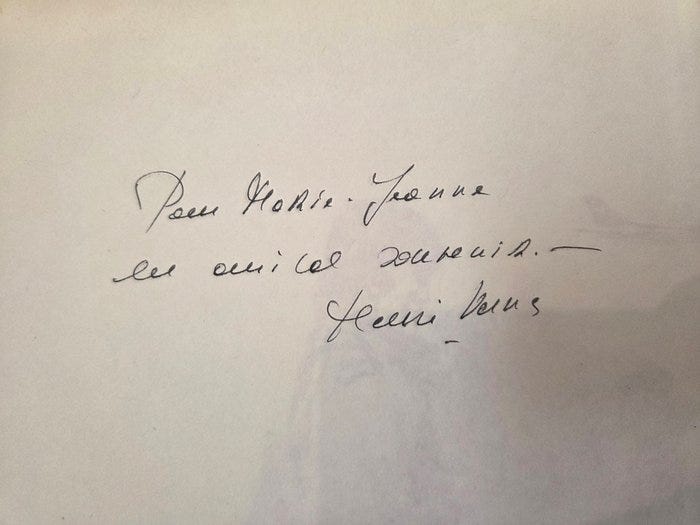 Pour Marie-Jeanne
en amical souvenir. —
Henri